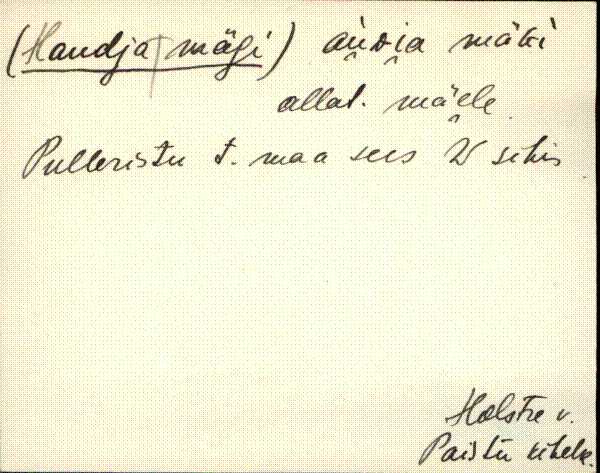 (Haudja mägi) aùᴅia mäki
allat. mäele
Pulleristu t. maa sees W sihis
Holstre v.
Paistu kihelk.